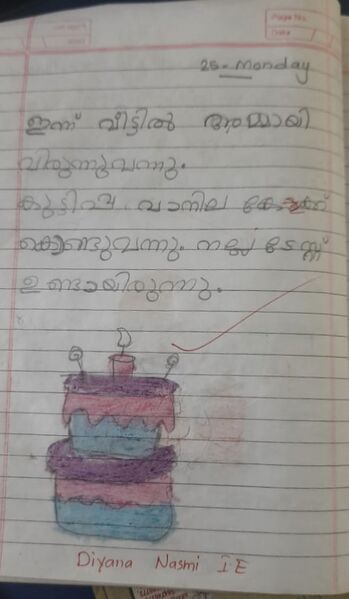 Page No.
Date
25 - Monday
ഇന്ന് വീട്ടിൽ അമ്മായി
വിരുന്നുവന്നു.
കുട്ടിഷ വാനില കേക്ക്
കൊണ്ടുവന്നു. നല്ല ടേസ്റ്റ്
ഉണ്ടായിരുന്നു.
Diyana Nasmi I E